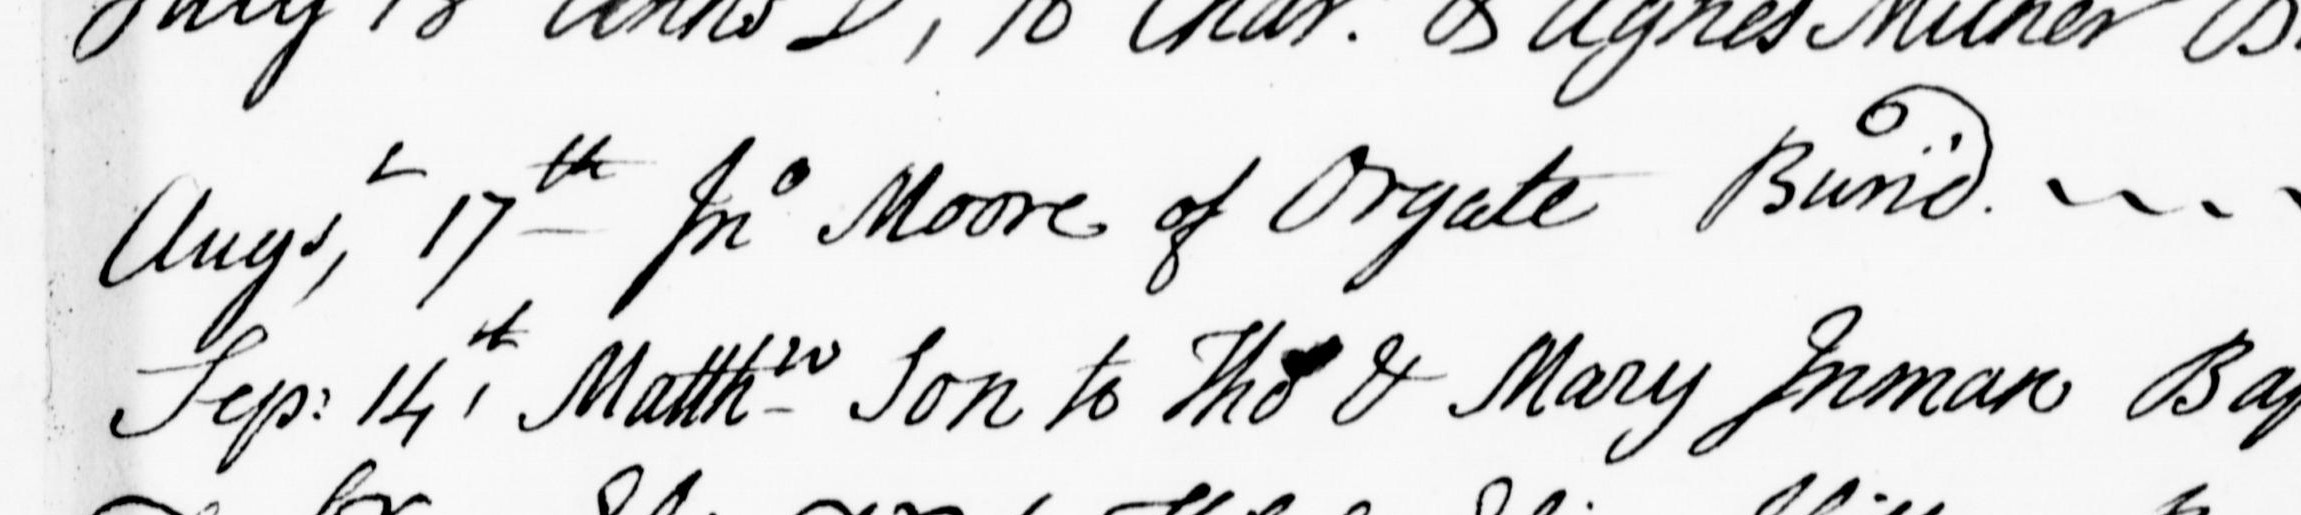 July 18 Anne D, to Char. & Agnes Milner B
Augs,t 17th Jno Moore of Orgate Buried.
Sep: 14th, Matthw Son to Tho & Mary Inman Bap